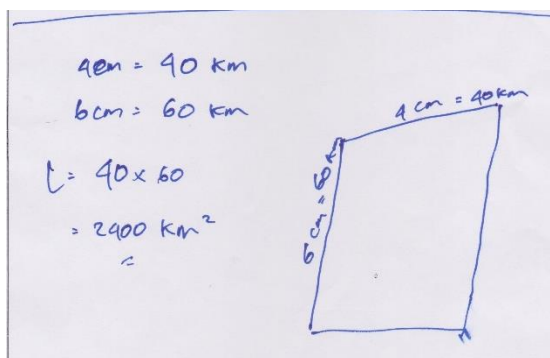 4cm = 40 km
6cm = 60 km
L = 40 x 60
= 2400 km²
=
4 cm = 40km
6 cm = 60 km